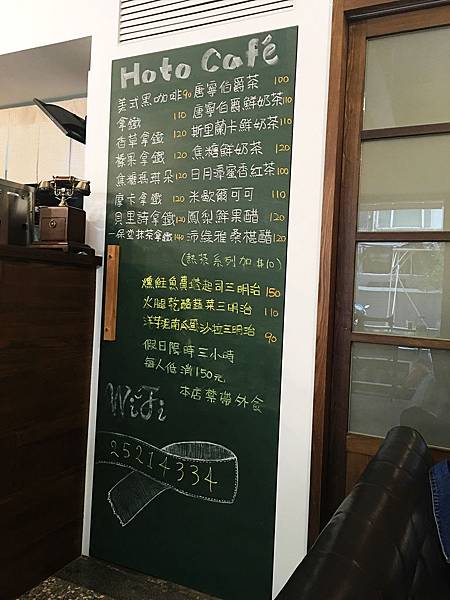 Hoto Café
美式黑咖啡90 唐寧伯爵茶 100
拿鐵 110 唐寧伯爵鮮奶茶110
香草拿鐵 120 斯里蘭卡鮮奶茶110
榛果拿鐵 120 焦糖鮮奶茶 120
焦糖瑪琪朵 120 日月潭蜜香紅茶100
摩卡拿鐵 120 米歇爾可可 110
貝里詩拿鐵120 鳳梨鮮果醋 120
一保堂抹茶拿鐵140 沛綠雅桑椹醋120
(熱茶系列加$10)
燻鮭魚農塔起司三明治 150
火腿乾酪蔬菜三明治 110
洋芋班南瓜蛋沙拉三明治 90
假日限時三小時
每人低消150元
本店禁帶外食
WiFi
25214334